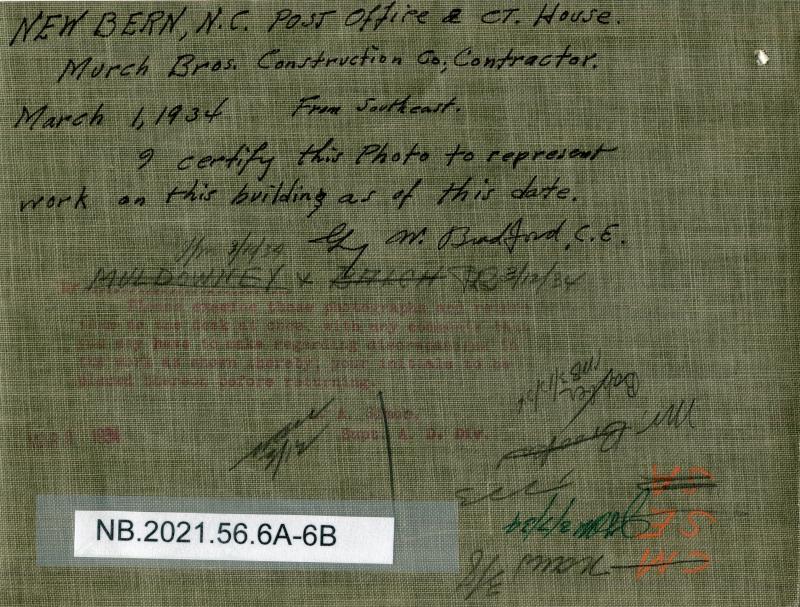 NEW BERN, N.C. POST Office & CT. House.
Murch Bros. Construction Co., Contractor.
March 1, 1934 From Southeast.
I certify this Photo to represent
work on this building as of this date.
W. Bradford, C.E.
3/12/34
MULDOWNEY & BALCH 3/12/34
Please examine these photographs and return
them to the desk at once, with any comments that
you may have to make regarding discrepancies in
the work as shown thereby, your initials to be
placed thereon before returning.
Supt. A. D. Div.
1934
3/12
Mr.
CA
SE
CM
NB.2021.56.6A-6B